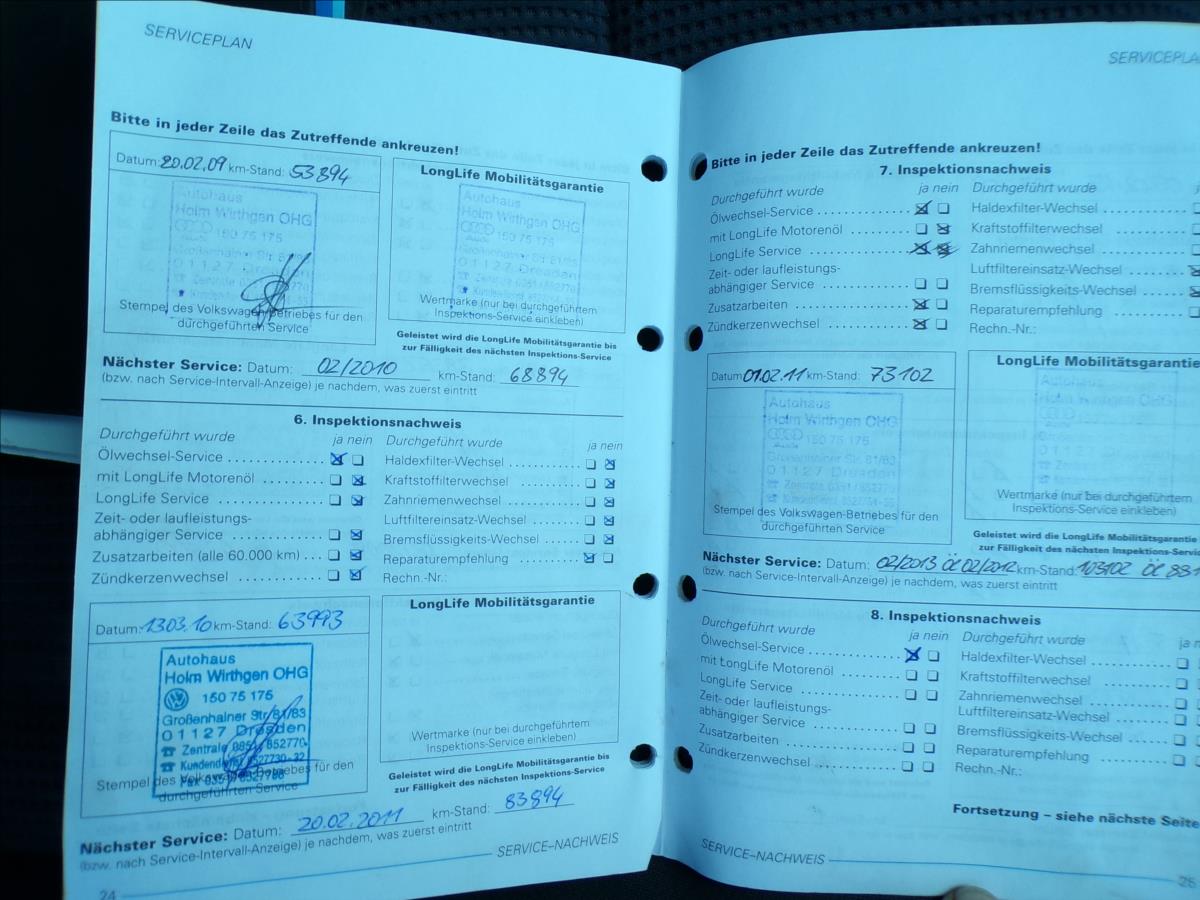 SERVICEPLAN
Bitte in jeder Zeile das Zutreffende ankreuzen!
Datum: 20.02.09 km-Stand: 53894
Autohaus
Holm Wirthgen OHG
150 75 175
Großenhainer Str. 81/83
01127 Dresden
Stempel des Volkswagen-Betriebes für den
durchgeführten Service
LongLife Mobilitätsgarantie
Autohaus
Holm Wirthgen OHG
150 75 175
Großenhainer Str. 81/83
01127 Dresden
Wertmarke (nur bei durchgeführtem
Inspektions-Service einkleben)
Geleistet wird die LongLife Mobilitätsgarantie bis
zur Fälligkeit des nächsten Inspektions-Service
Nächster Service: Datum: 02/2010 km-Stand: 68894
(bzw. nach Service-Intervall-Anzeige) je nachdem, was zuerst eintritt
6. Inspektionsnachweis
Durchgeführt wurde ja nein
Ölwechsel-Service
mit LongLife Motorenöl
LongLife Service
Zeit- oder laufleistungs-
abhängiger Service
Zusatzarbeiten (alle 60.000 km)
Zündkerzenwechsel
Durchgeführt wurde ja nein
Haldexfilter-Wechsel
Kraftstoffilterwechsel
Zahnriemenwechsel
Luftfiltereinsatz-Wechsel
Bremsflüssigkeits-Wechsel
Reparaturempfehlung
Rechn.-Nr.:
Datum: 13.03.10 km-Stand: 63993
Autohaus
Holm Wirthgen OHG
150 75 175
Großenhainer Str. 81/83
01127 Dresden
Zentrale 0351/852770
Kundendienst 8527730-32
Fax 0351/8527766
Stempel des Volkswagen-Betriebes für den
durchgeführten Service
LongLife Mobilitätsgarantie
Wertmarke (nur bei durchgeführtem
Inspektions-Service einkleben)
Geleistet wird die LongLife Mobilitätsgarantie bis
zur Fälligkeit des nächsten Inspektions-Service
Nächster Service: Datum: 20.02.2011 km-Stand: 83894
(bzw. nach Service-Intervall-Anzeige) je nachdem, was zuerst eintritt
SERVICE–NACHWEIS
24
SERVICEPLA
Bitte in jeder Zeile das Zutreffende ankreuzen!
7. Inspektionsnachweis
Durchgeführt wurde ja nein
Ölwechsel-Service
mit LongLife Motorenöl
LongLife Service
Zeit- oder laufleistungs-
abhängiger Service
Zusatzarbeiten
Zündkerzenwechsel
Durchgeführt wurde
Haldexfilter-Wechsel
Kraftstoffilterwechsel
Zahnriemenwechsel
Luftfiltereinsatz-Wechsel
Bremsflüssigkeits-Wechsel
Reparaturempfehlung
Rechn.-Nr.:
Datum: 01.02.11 km-Stand: 73102
Autohaus
Holm Wirthgen OHG
150 75 175
Großenhainer Str. 81/83
01127 Dresden
Stempel des Volkswagen-Betriebes für den
durchgeführten Service
LongLife Mobilitätsgarantie
Wertmarke (nur bei durchgeführtem
Inspektions-Service einkleben)
Geleistet wird die LongLife Mobilitätsgarantie
zur Fälligkeit des nächsten Inspektions-Service
Nächster Service: Datum: 02/2013 ÖL 02/2012 km-Stand: 103102 ÖL 881
(bzw. nach Service-Intervall-Anzeige) je nachdem, was zuerst eintritt
8. Inspektionsnachweis
Durchgeführt wurde ja nein
Ölwechsel-Service
mit LongLife Motorenöl
LongLife Service
Zeit- oder laufleistungs-
abhängiger Service
Zusatzarbeiten
Zündkerzenwechsel
Durchgeführt wurde
Haldexfilter-Wechsel
Kraftstoffilterwechsel
Zahnriemenwechsel
Luftfiltereinsatz-Wechsel
Bremsflüssigkeits-Wechsel
Reparaturempfehlung
Rechn.-Nr.:
Fortsetzung – siehe nächste Seite
SERVICE–NACHWEIS
25